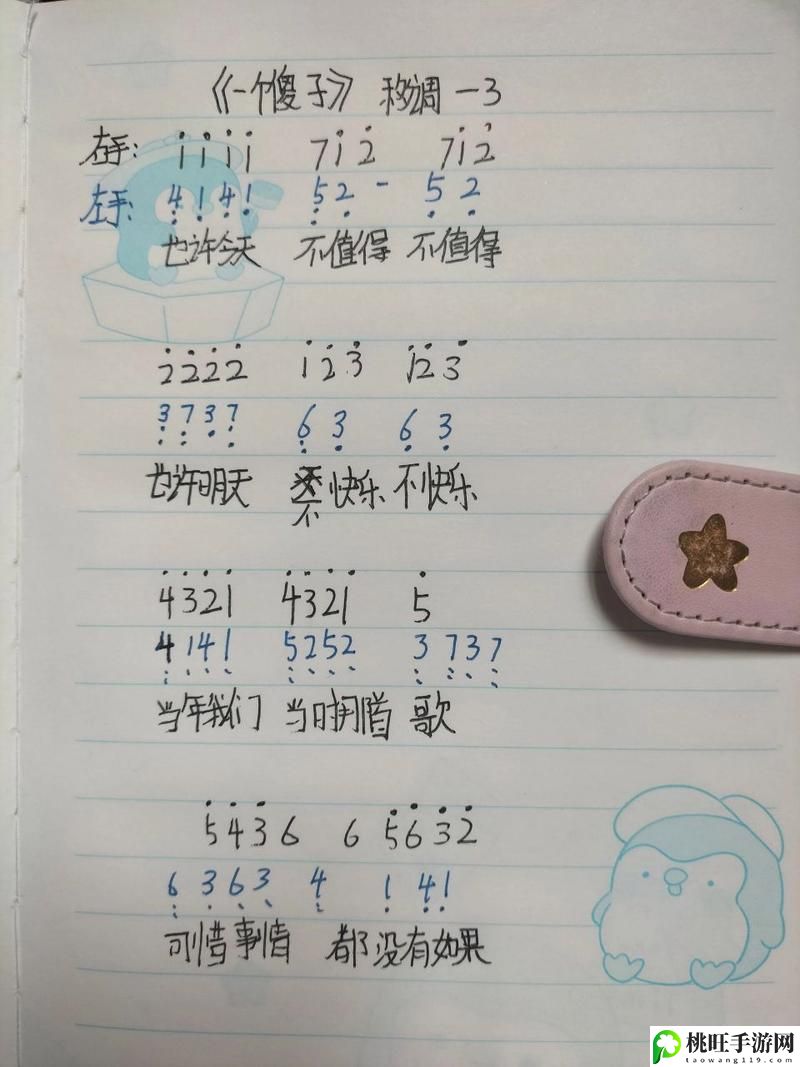 《一个傻子》 移调 -3
右手: 1111 712 712
左手: 4141 52- 52
也许今天 不值得 不值得
2222 123 123
3737 63 63
也许明天 不快乐 不快乐
4321 4321 5
4141 5252 3737
当年我们 当时拥着 歌
5436 65632
6363 4 141
可惜事情 都没有如果
桃旺手游网
taowang119.com